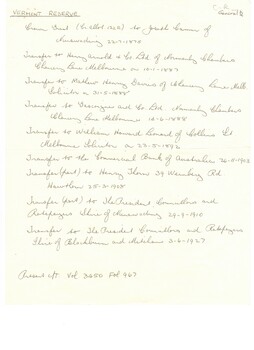 VERMONT RESERVE
General
Crown Grant to Josiah Corner of
Nunawading 22-7-1870
Transfer to Henry Arnold & Co Ltd of Normanby Chambers
Chancery Lane Melbourne on 10-11-1887
Transfer to Mathew Henry Davies of Chancery Lane Melb
Solicitor on 31-5-1888
Transfer to and Co Ltd Normanby Chambers
Chancery Lane Melbourne 16-6-1888
Transfer to William Howard of Collins St
Melbourne Solicitor on 22-5-1896
Transfer to the Commercial Bank of Australia
Transfer (part) to Henry Thorn 39 Rd
Hawthorn
Transfer (part) to The President Councillors and
Ratepayers Shire of Nunawading 29-9-1910
Transfer to The President Councillors and Ratepayers
Shire of Blackburn and Mitcham 2-6-1927
Present c/t Vol 3650 Fol 967